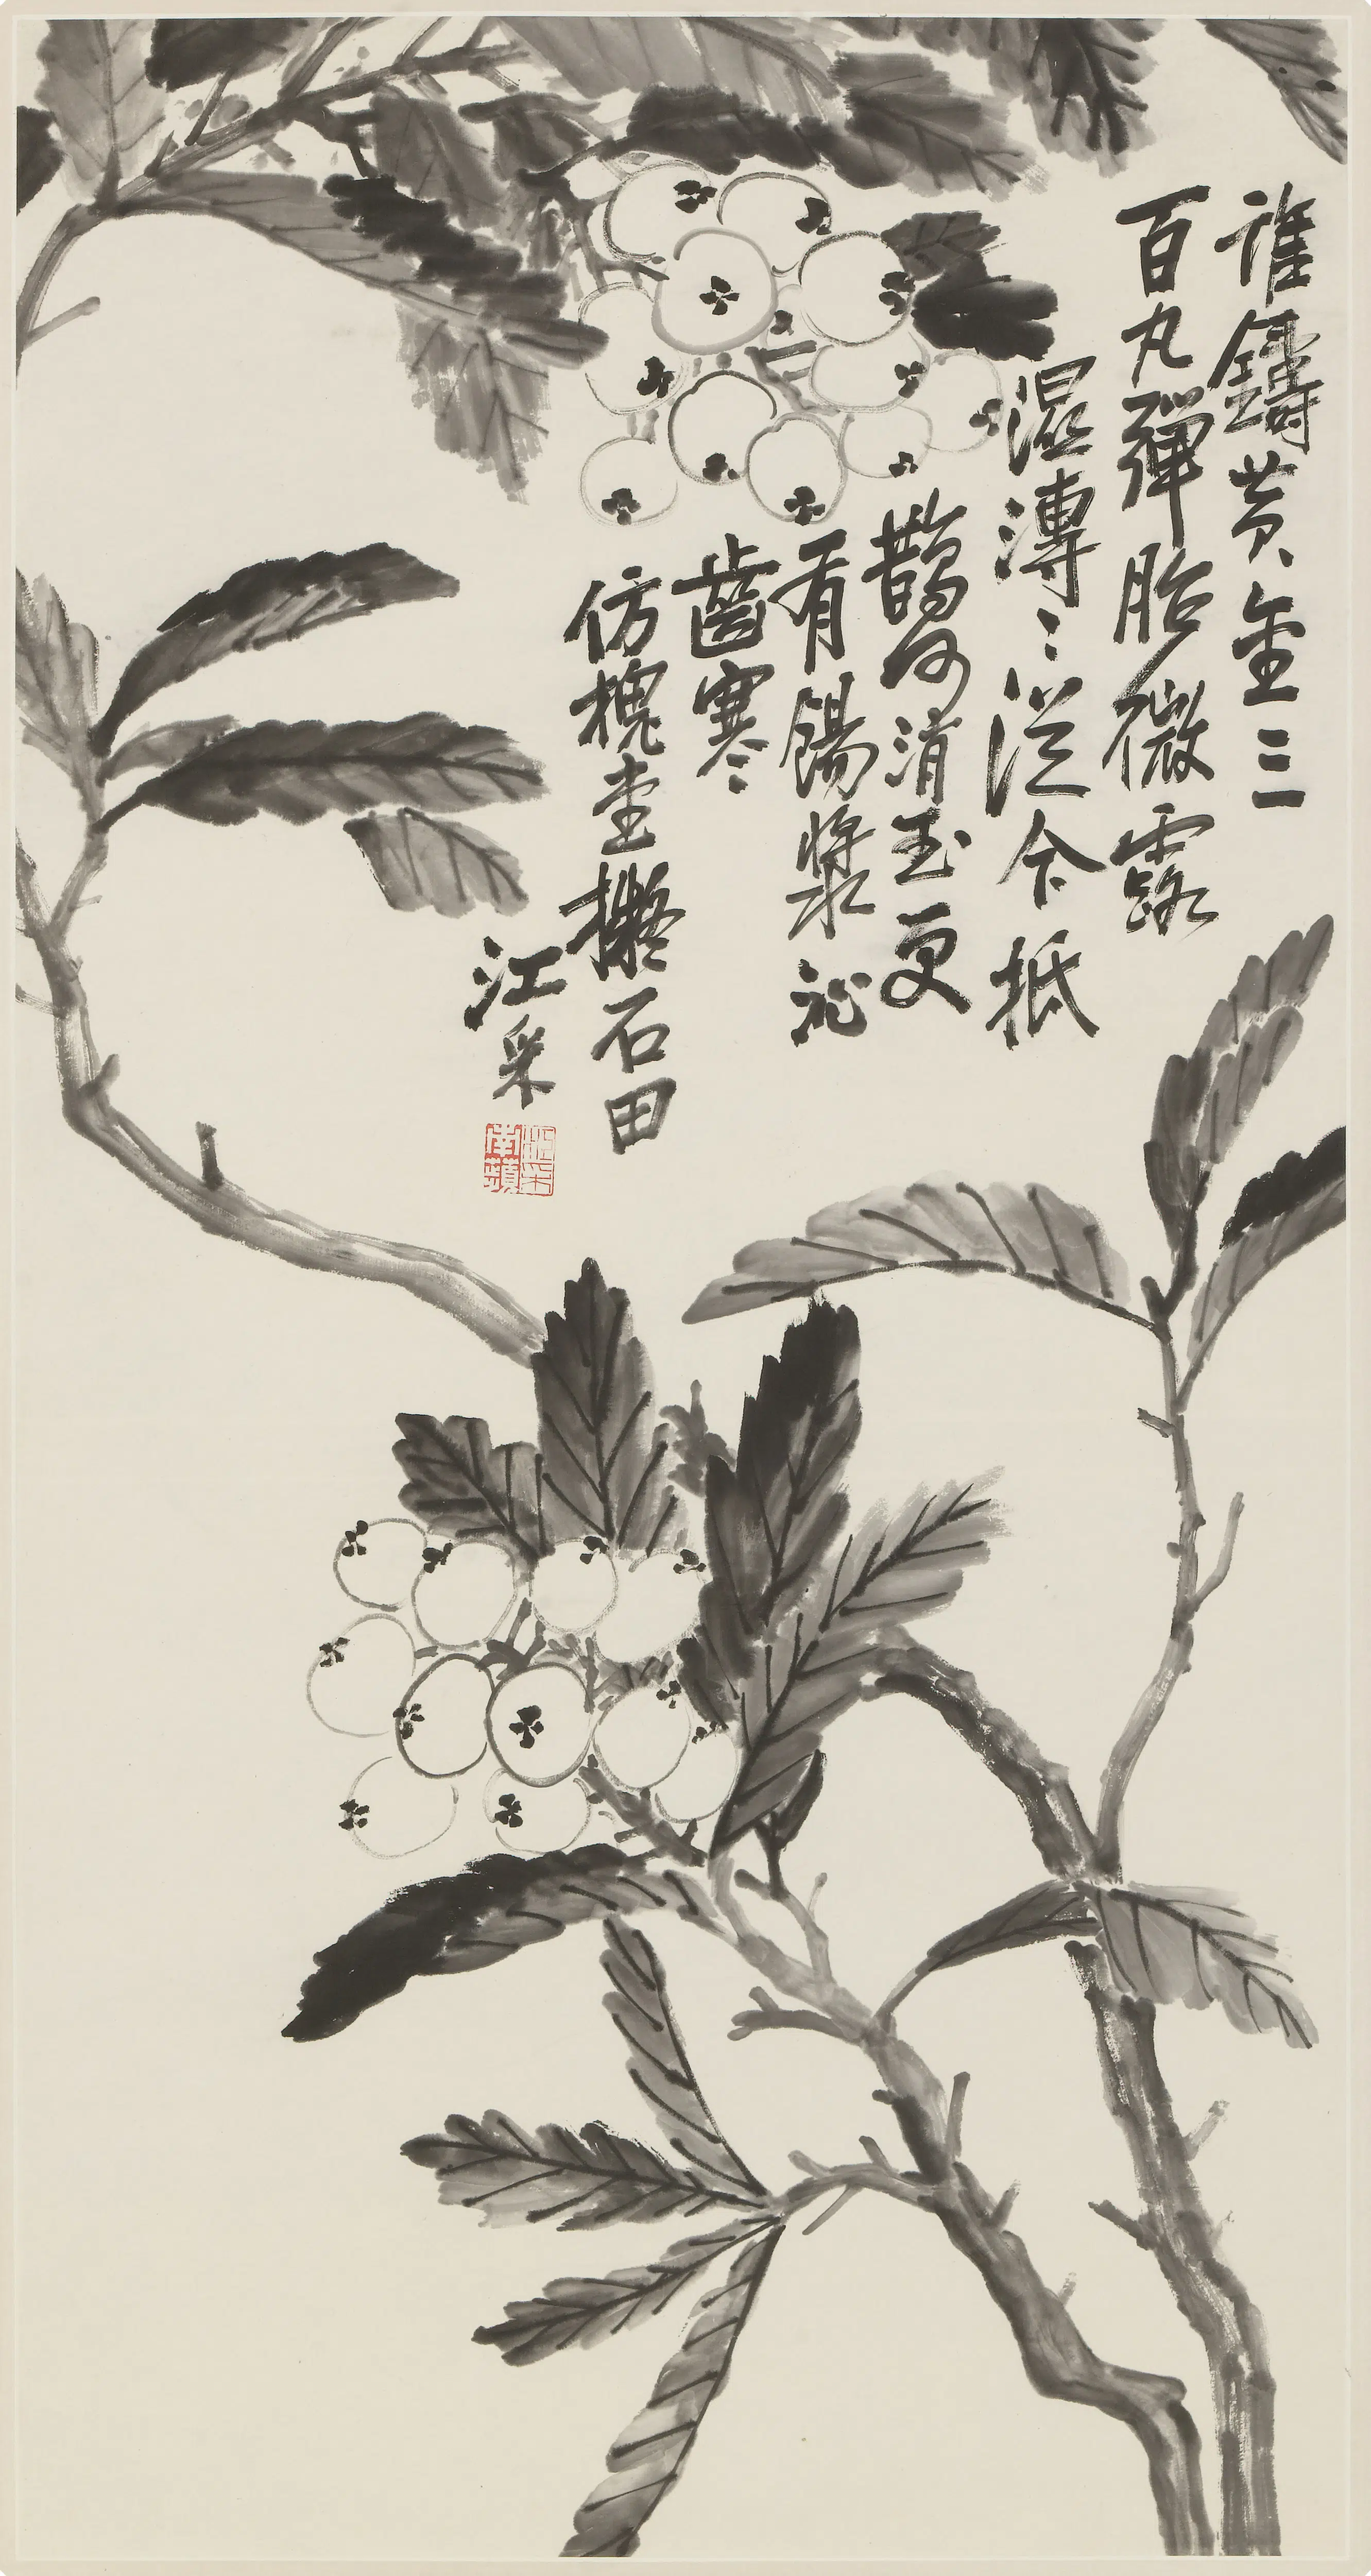 誰鑄黃金三
百丸彈胎微露
濕漙〻從今抵
鵲何消玉更
有餳漿沁
齒寒
仿槐堂擬石田
江采
江采
南蘋